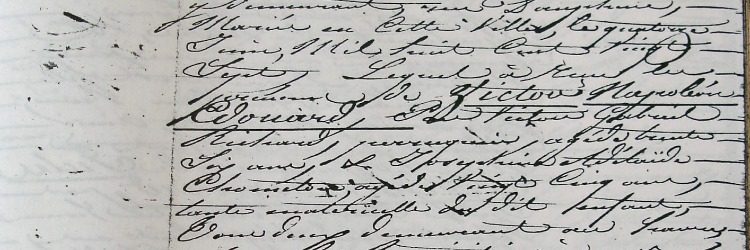 demeurant, rue Dauphine,
Mariés en cette Ville, le quatorze
Juin, Mil huit Cent vingt
Sept, Lequel a reçu les
prénoms de Victor Napoléon
Edouard, De Victor Gabriel
Richard, perruquier, agé de trente
Six ans, & Joséphine Adélaïde
agée de Vingt Cinq ans,
tante maternelle du dit enfant,
Tous deux demeurant au